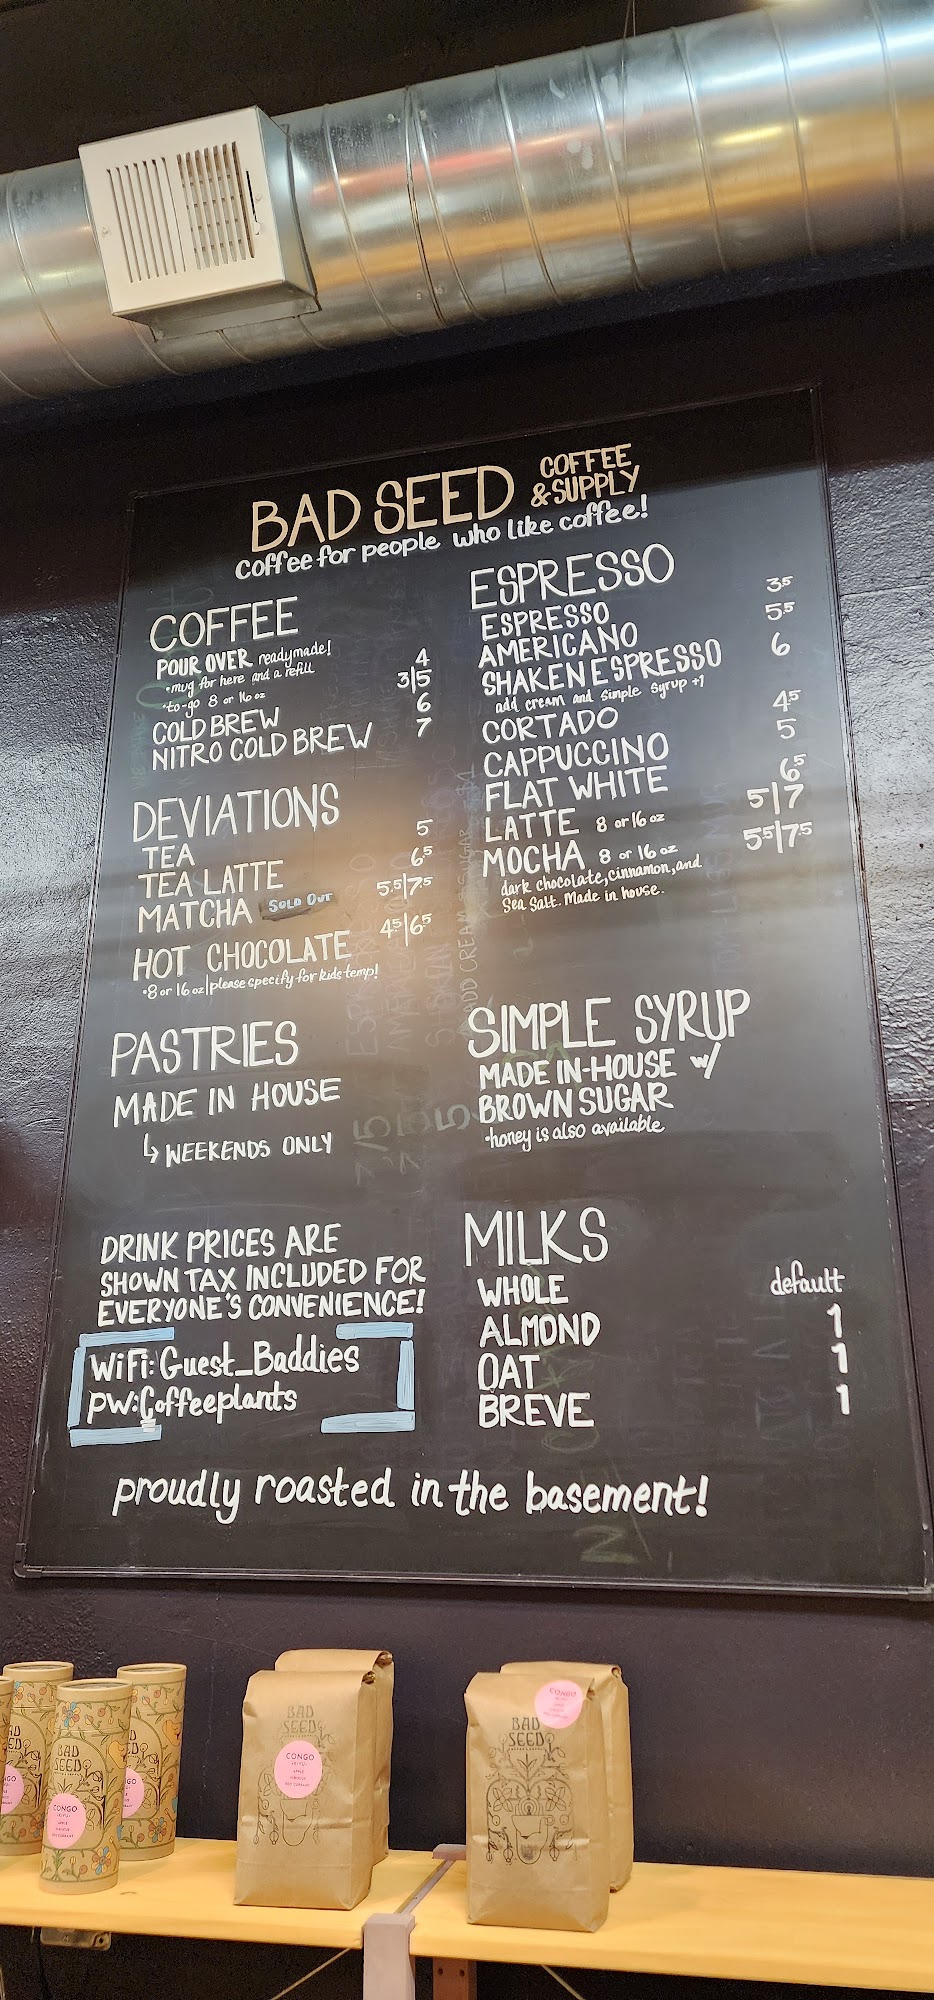 BAD SEED COFFEE & SUPPLY
coffee for people who like coffee!
COFFEE
POUR OVER readymade!
•mug for here and a refill 4
•to-go 8 or 16 oz 3|5
COLD BREW 6
NITRO COLD BREW 7
DEVIATIONS
TEA 5
TEA LATTE 6⁵
MATCHA SOLD OUT 5⁵|7⁵
HOT CHOCOLATE 4⁵|6⁵
•8 or 16 oz|please specify for kids temp!
PASTRIES
MADE IN HOUSE
↳ WEEKENDS ONLY
DRINK PRICES ARE
SHOWN TAX INCLUDED FOR
EVERYONE'S CONVENIENCE!
WiFi: Guest_Baddies
PW: Coffeeplants
ESPRESSO
ESPRESSO 3⁵
AMERICANO 5⁵
SHAKEN ESPRESSO 6
add cream and simple syrup +1
CORTADO 4⁵
CAPPUCCINO 5
FLAT WHITE 6⁵
LATTE 8 or 16 oz 5|7
MOCHA 8 or 16 oz 5⁵|7⁵
dark chocolate, cinnamon, and
Sea Salt. Made in house.
SIMPLE SYRUP
MADE IN-HOUSE w/
BROWN SUGAR
•honey is also available
MILKS
WHOLE default
ALMOND 1
OAT 1
BREVE 1
proudly roasted in the basement!
BAD
SEED
CONGO
BAD
SEED
CONGO
APPLE
HIBISCUS
RED CURRANT
BAD
SEED
CONGO